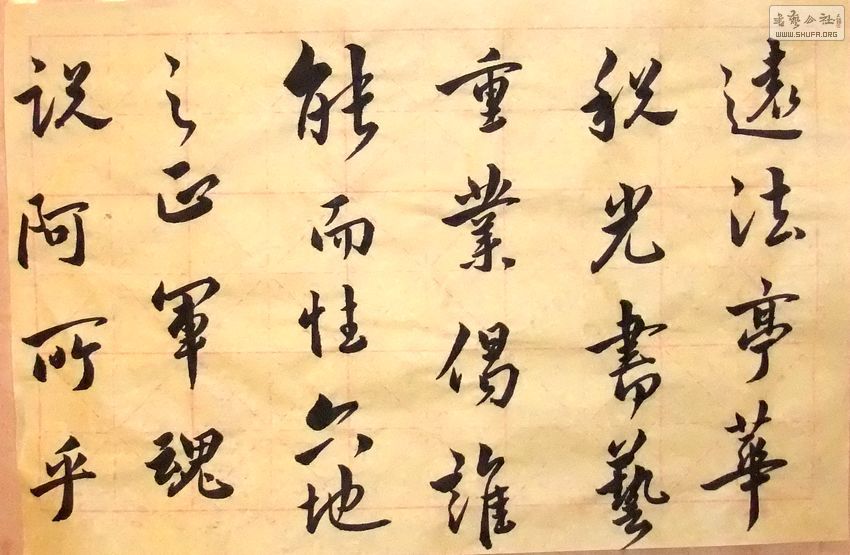 遠法亭華
税光書藝
重業偈誰
能而性空地
之正軍魂
说阿所乎
書藝公社
WWW.SHUFA.ORG